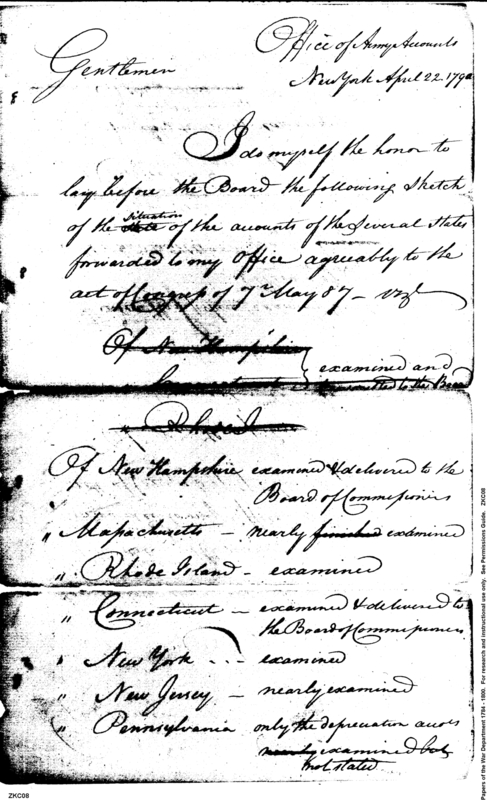 Office of Army Accounts
New York April 22. 1790
Gentlemen
I do myself the honor to
lay before the Board the following Sketch
of the State Situation of the accounts of the Several States
forwarded to my Office agreeably to the
act of Congress of 7th May 87 – vizt
Of New Hampshire
Connecticut } examined and
transmitted to the Board
" Rhode I
Of New Hampshire examined & delivered to the
Board of Commissioners
" Massachusetts – nearly finished examined
" Rhode Island – examined
" Connecticut – examined & delivered to
the Board of Commissioners
" New York . . . examined
" New Jersey – nearly examined
" Pennsylvania only the depreciation accots
nearly examined but
not stated
ZKC08
Papers of the War Department 1784 - 1800. For research and instructional use only. See Permissions Guide. ZKC08